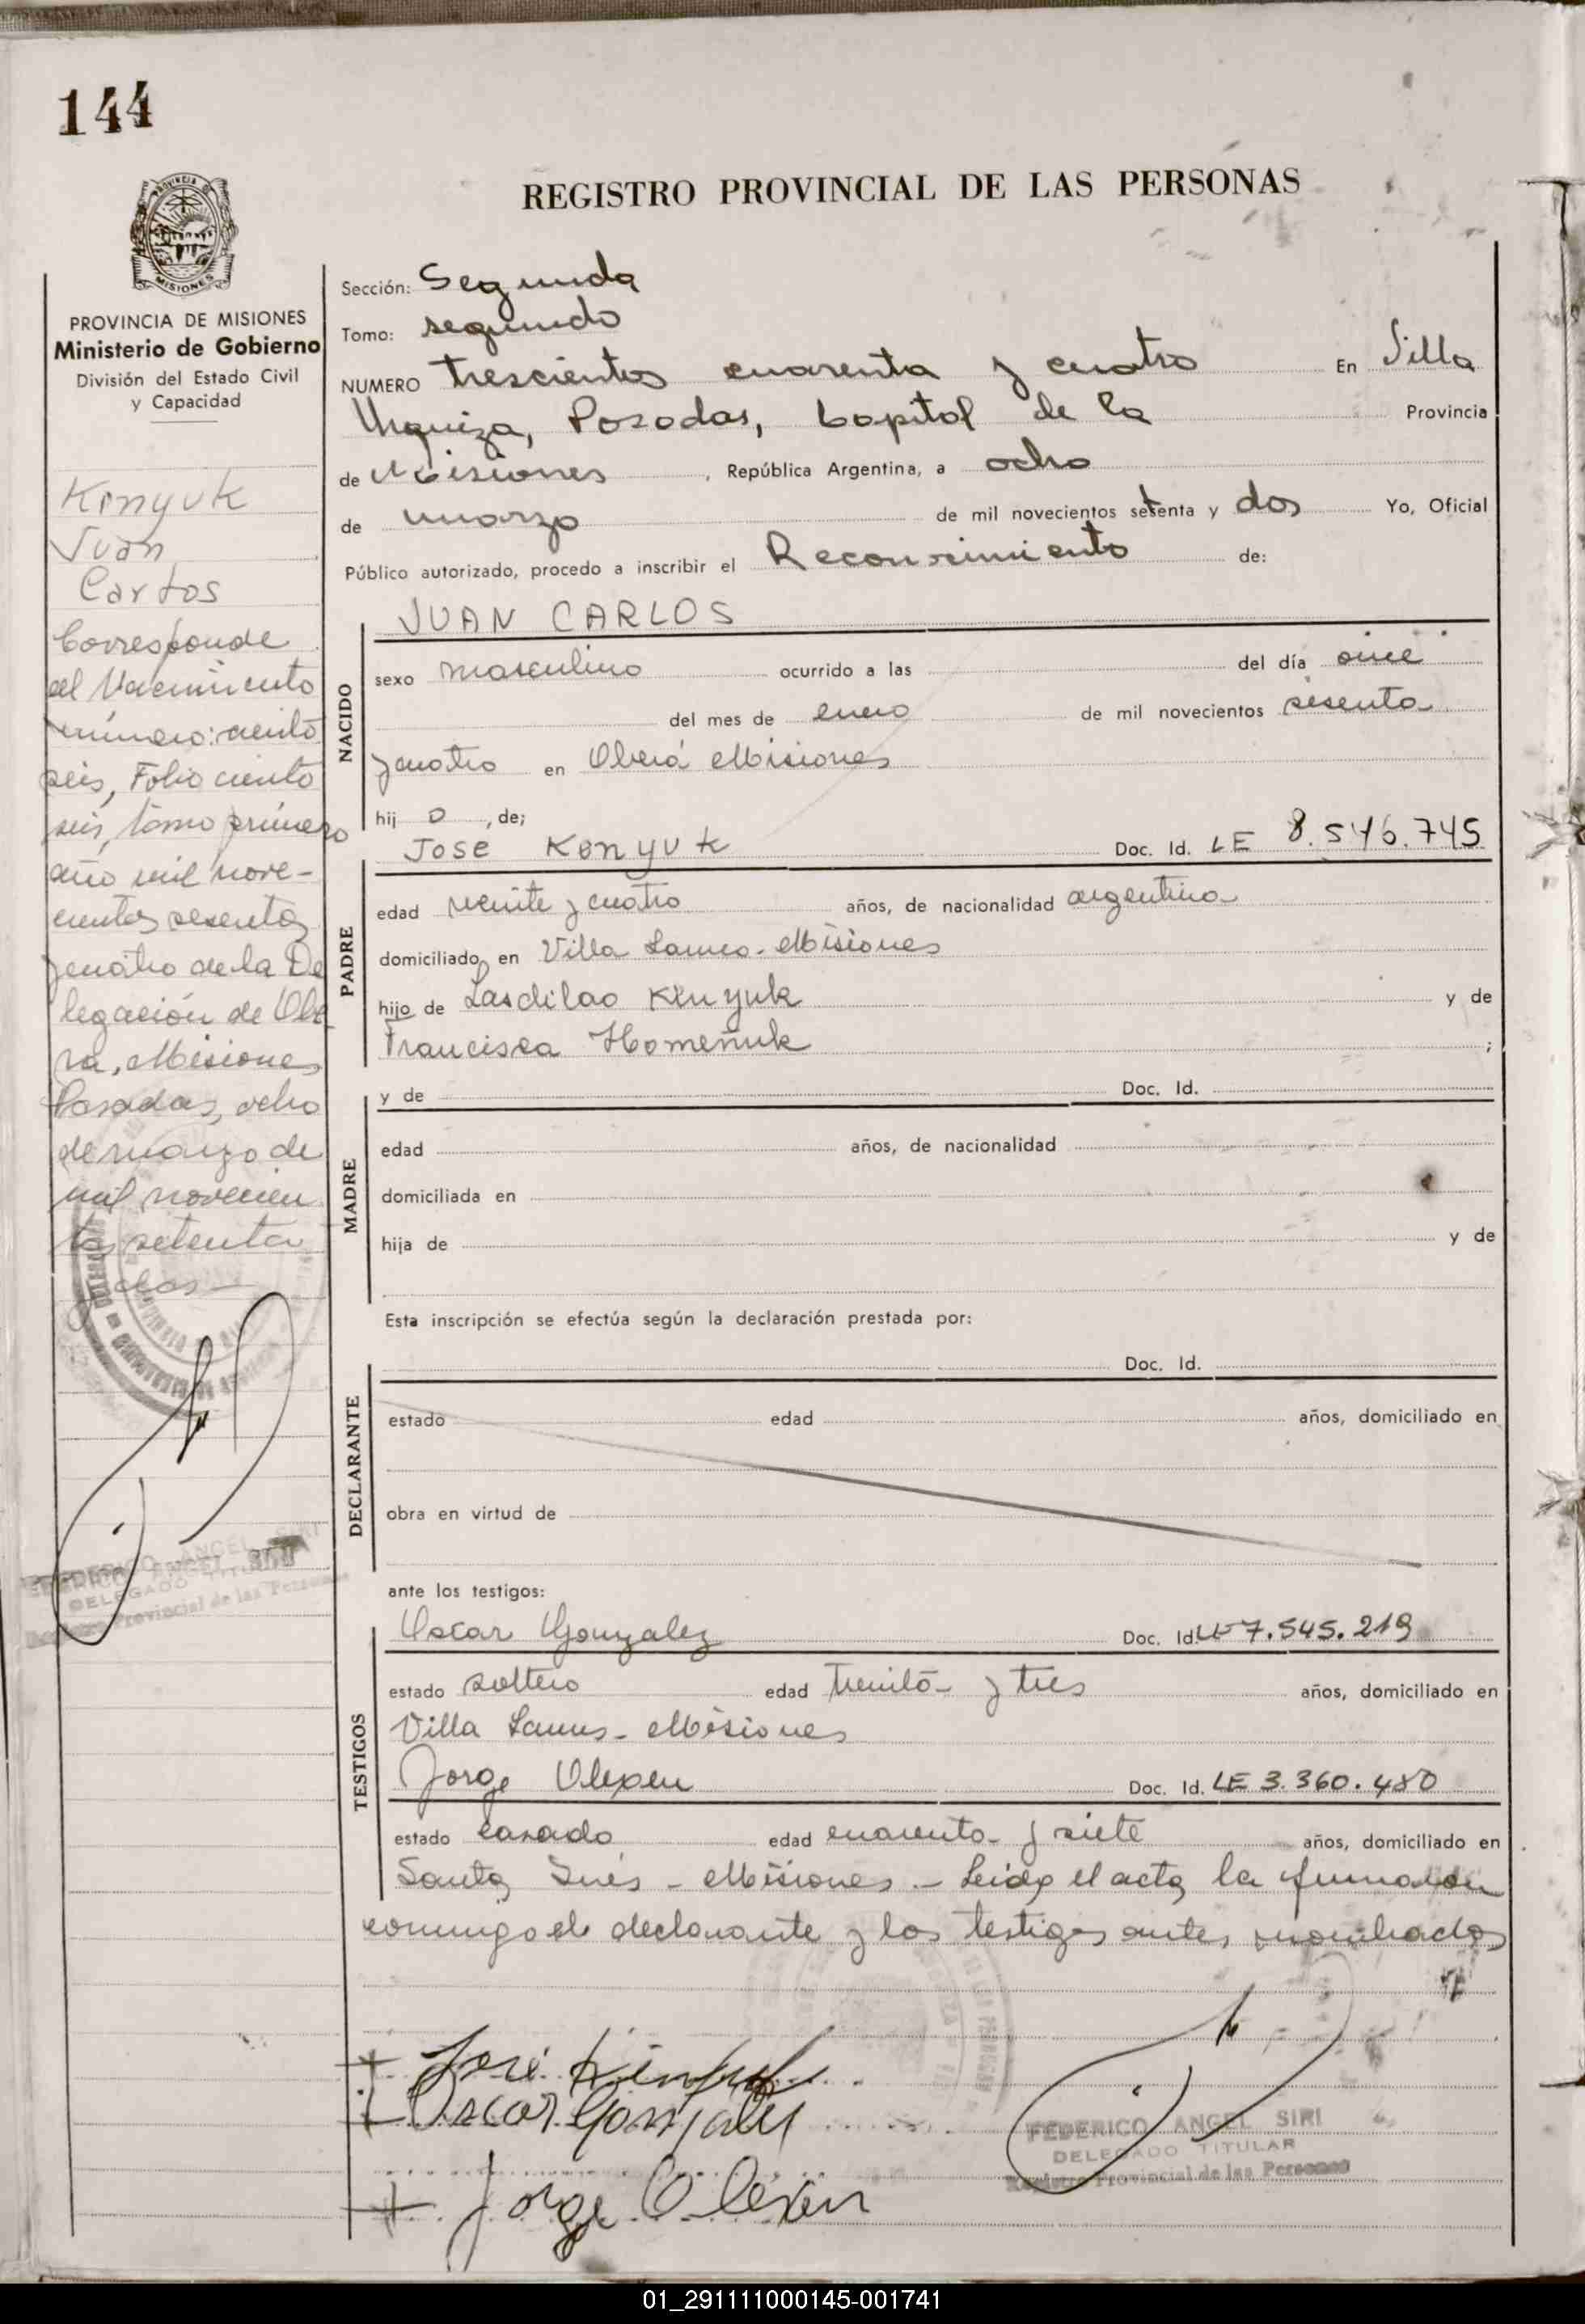 144
REGISTRO PROVINCIAL DE LAS PERSONAS
PROVINCIA DE MISIONES
Ministerio de Gobierno
División del Estado Civil
y Capacidad
Kinyuk
Juan
Carlos
Corresponde
al Nacimiento
número: ciento
seis, Folio ciento
seis, tomo primero
año mil nove-
cientos sesenta
y cuatro de la De
legación de Obe
ra, Misiones
Posadas, ocho
de marzo de
mil novecien
tos setenta
y dos
Sección: Segunda
Tomo: segundo
NUMERO trescientos cuarenta y cuatro En Villa
Urquiza, Posadas, Capital de la Provincia
de Misiones, República Argentina, a ocho
de marzo de mil novecientos setenta y dos Yo, Oficial
Público autorizado, procedo a inscribir el Reconocimiento de:
JUAN CARLOS
NACIDO
sexo masculino ocurrido a las del día once
del mes de enero de mil novecientos sesenta
y cuatro en Oberá Misiones
hij o, de;
Jose Kinyuk Doc. Id. LE 8.546.745
PADRE
edad veinte y cuatro años, de nacionalidad argentina
domiciliado en Villa Lanus - Misiones
hijo de Lasdilao Kinyuk y de
Francisca Homeñuk ;
y de Doc. Id.
MADRE
edad años, de nacionalidad
domiciliada en
hija de y de
Esta inscripción se efectúa según la declaración prestada por:
Doc. Id.
DECLARANTE
estado edad años, domiciliado en
obra en virtud de
ante los testigos:
Oscar Gonzalez Doc. Id. LE 7.545.219
TESTIGOS
estado soltero edad treinta y tres años, domiciliado en
Villa Lanus - Misiones
Jorge Olexen Doc. Id. LE 3.360.480
estado casado edad cuarenta y siete años, domiciliado en
Santa Inés - Misiones - Leida el acta, la firmaron
conmigo el declarante y los testigos antes nombrados
José Kinyuk
Oscar Gonzalez
Jorge Olexen
FEDERICO ANGEL SIRI
DELEGADO TITULAR
Registro Provincial de las Personas
FEDERICO ANGEL SIRI
DELEGADO TITULAR
Registro Provincial de las Personas
01_291111000145-001741